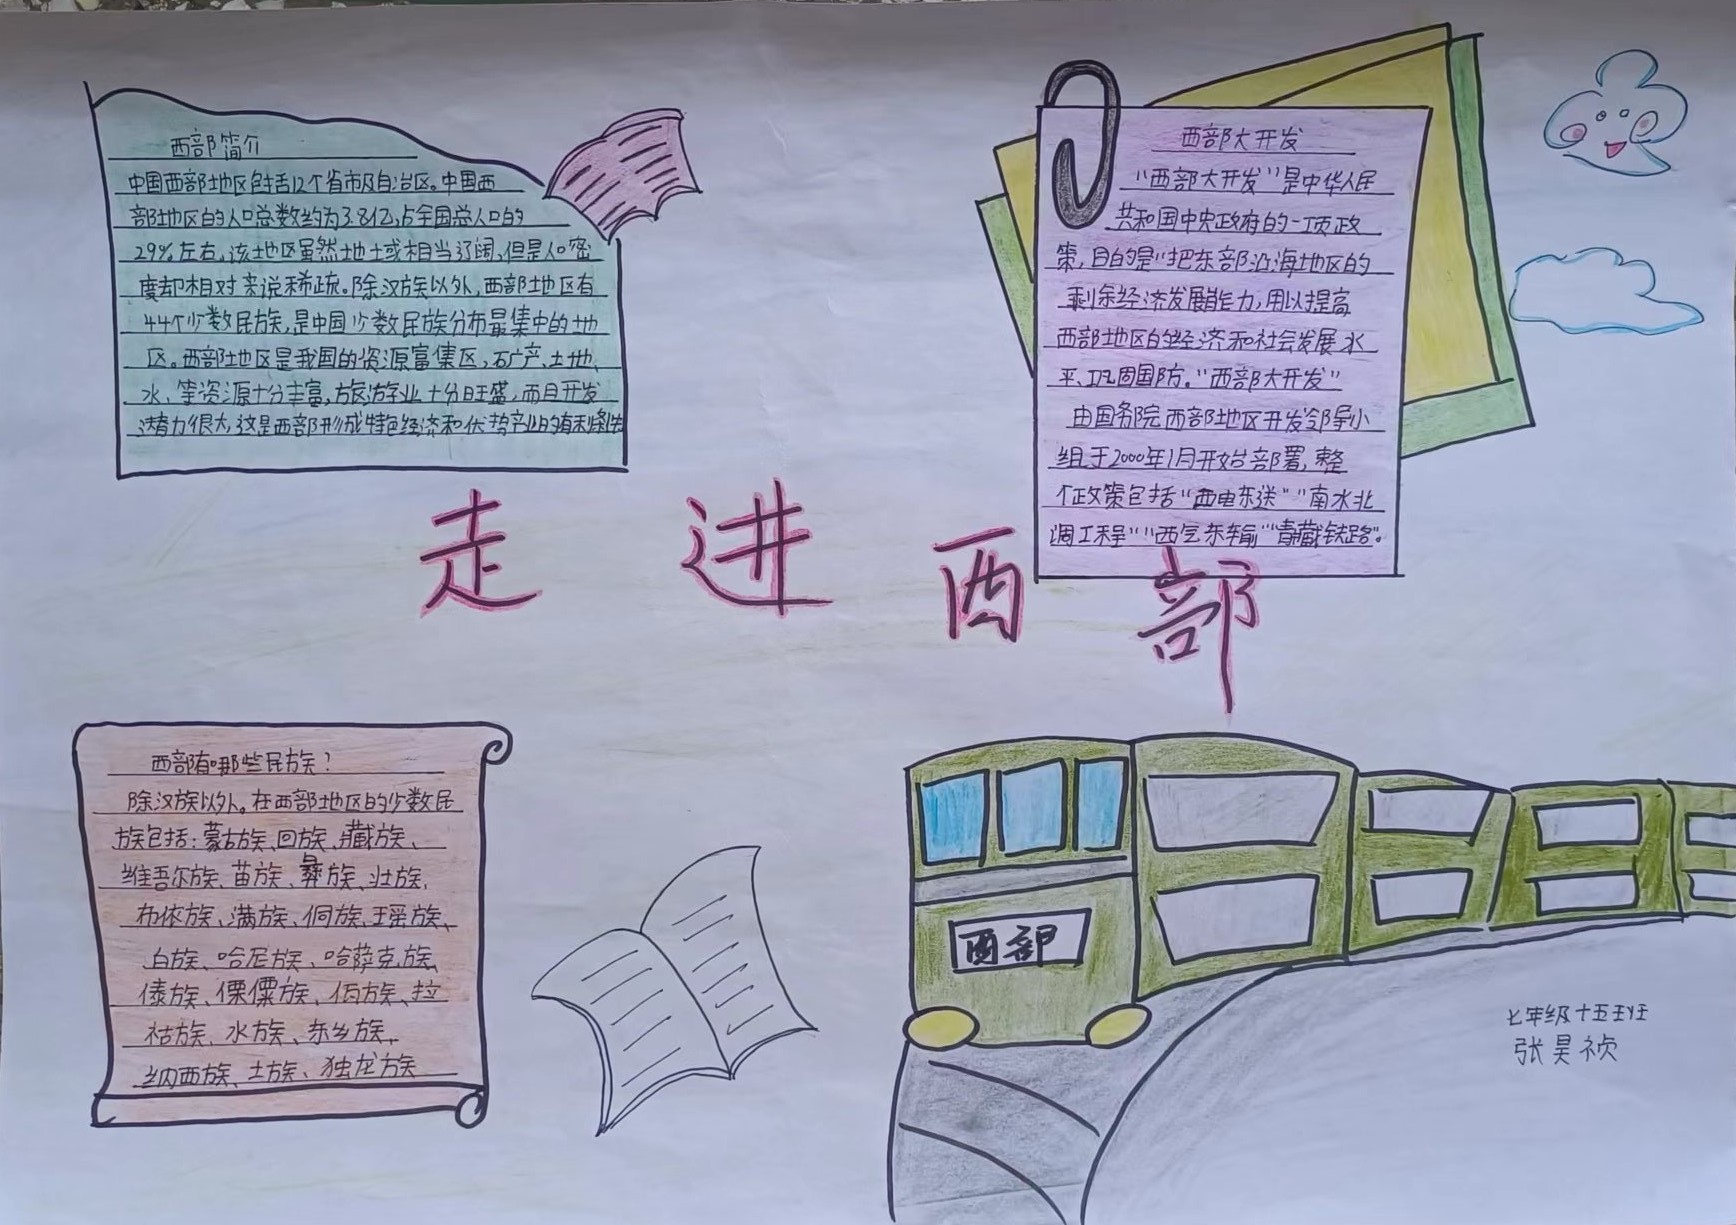 西部简介
中国西部地区包括12个省市及自治区。中国西
部地区的人口总数约为3.8亿,占全国总人口的
29%左右。该地区虽然地土或相当辽阔,但是人口密
度却相对来说稀疏。除汉族以外,西部地区有
44个少数民族,是中国少数民族分布最集中的地
区。西部地区是我国的资源富集区,矿产、土地、
水、等资源十分丰富,旅游业十分旺盛,而且开发
潜力很大,这是西部形成特色经济和优势产业的有利条件
西部大开发
“西部大开发”是中华人民
共和国中央政府的一项政
策,目的是“把东部沿海地区的
剩余经济发展能力,用以提高
西部地区的经济和社会发展水
平、巩固国防。“西部大开发”
由国务院西部地区开发领导小
组于2000年1月开始部署,整
个政策包括“西电东送”“南水北
调工程”“西气东输”“青藏铁路”。
走进西部
西部有哪些民族?
除汉族以外。在西部地区的少数民
族包括:蒙古族、回族、藏族、
维吾尔族、苗族、彝族、壮族、
布依族、满族、侗族、瑶族、
白族、哈尼族、哈萨克族、
傣族、傈僳族、佰族、拉
祜族、水族、东乡族、
纳西族、土族、独龙族
西部
七年级十五班
张昊祯